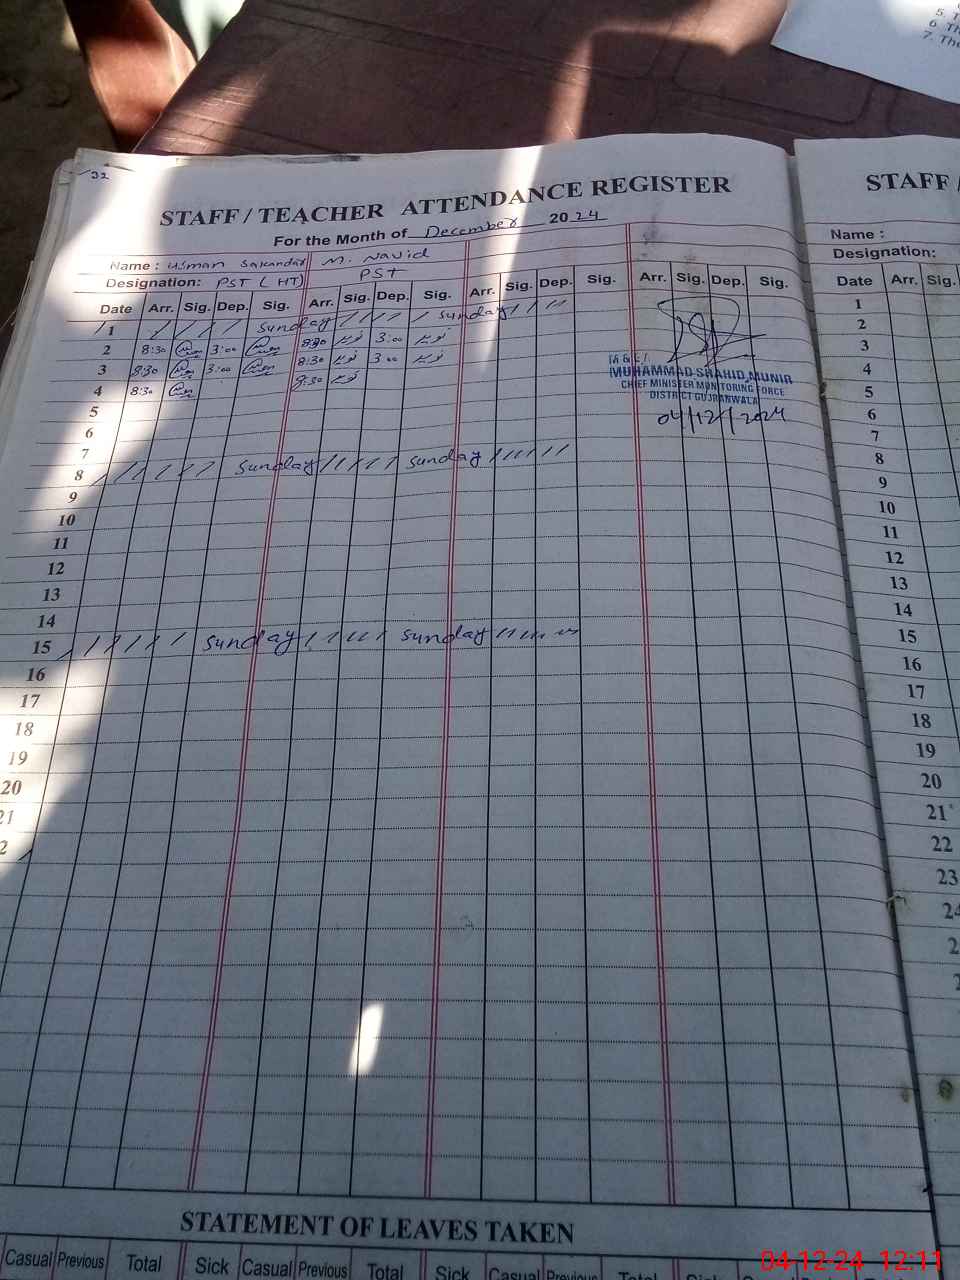 5. T
6. Th
7. The
32
STAFF / TEACHER ATTENDANCE REGISTER
For the Month of December 2024
Name : Usman Sakandar M. Navid
Designation: PST (HT) PST
Date Arr. Sig. Dep. Sig. Arr. Sig. Dep. Sig. Arr. Sig. Dep. Sig. Arr. Sig. Dep. Sig.
1 Sunday Sunday
2 8:30 3:00 8:30 3:00
3 8:30 3:00 8:30 3:00
4 8:30 8:30
5
6
7
8 Sunday Sunday
9
10
11
12
13
14
15 Sunday Sunday
16
17
18
19
20
21
2
MUHAMMAD SHAHID MUNIR
CHIEF MINISTER MONITORING FORCE
DISTRICT GUJRANWALA
04/12/2024
STATEMENT OF LEAVES TAKEN
Casual Previous Total Sick Casual Previous Total Sick Casual Previous Total Sick Casual
STAFF /
Name :
Designation:
Date Arr. Sig.
1
2
3
4
5
6
7
8
9
10
11
12
13
14
15
16
17
18
19
20
21
22
23
24
2
04-12-24 12:11